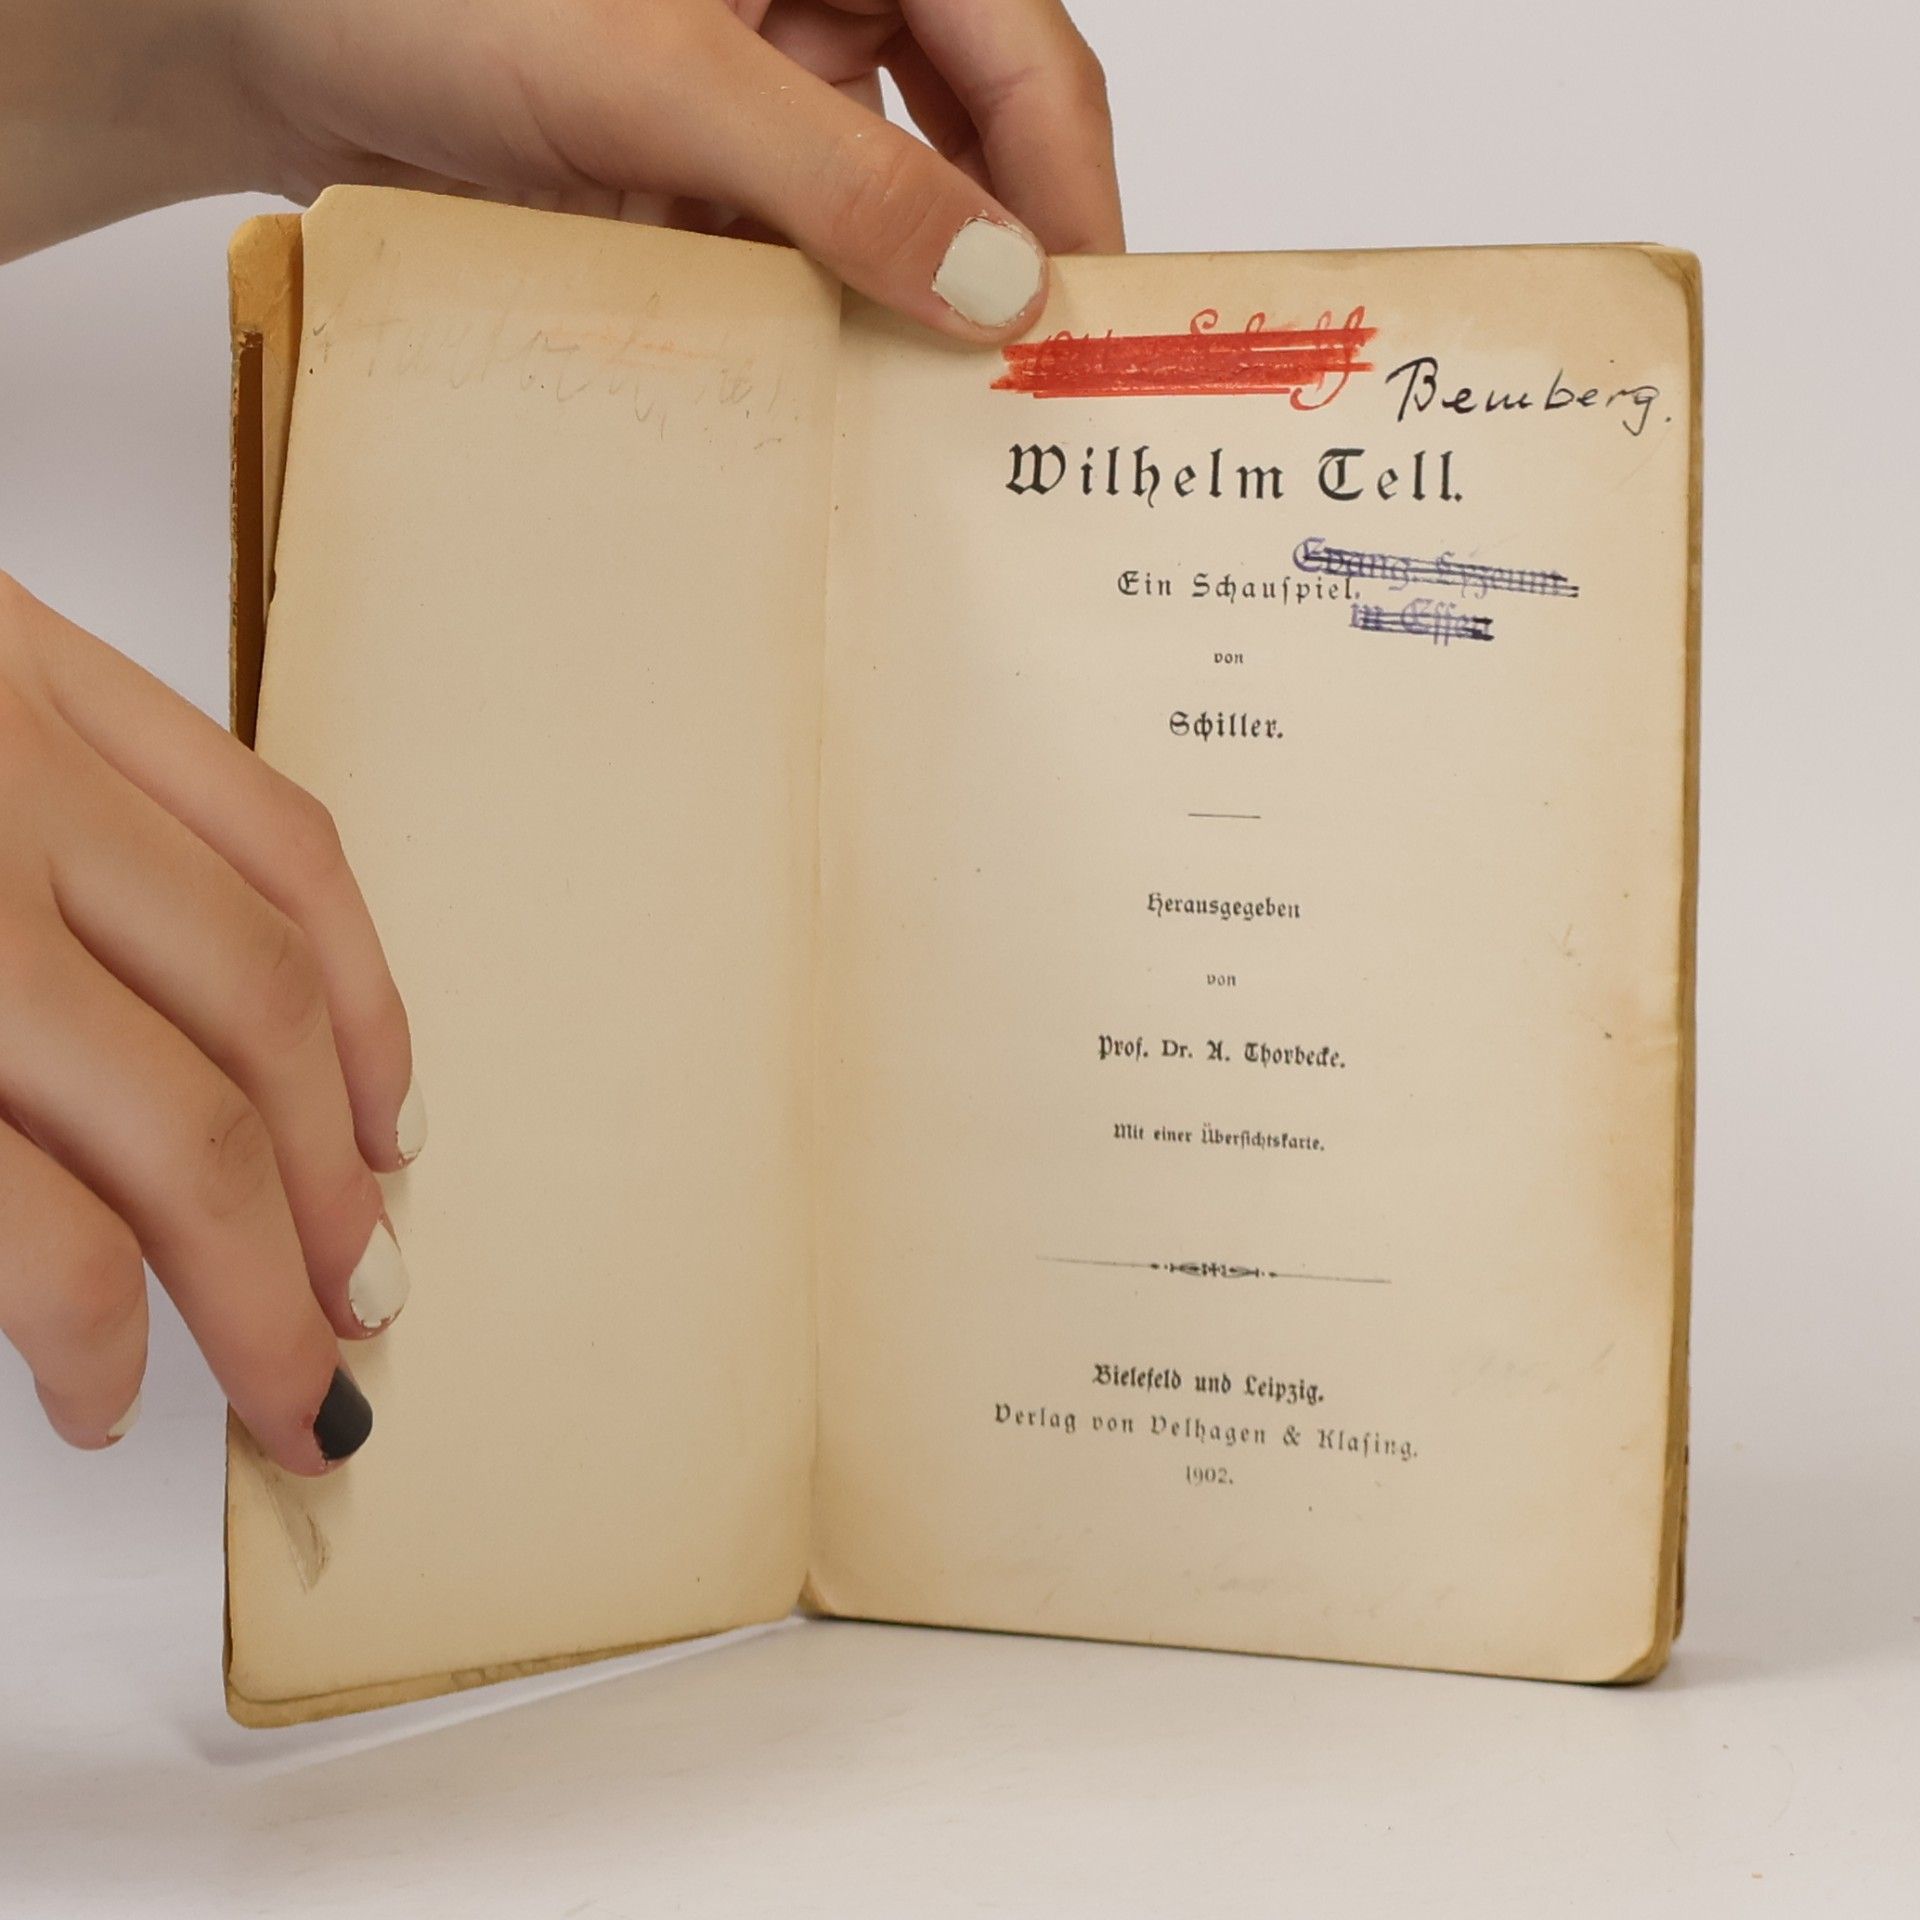 Bemberg.
Wilhelm Tell.
Evang. Lyzeum
Ein Schauspiel.
in Essen
von
Schiller.
Herausgegeben
von
Prof. Dr. A. Thorbecke.
Mit einer Übersichtskarte.
Bielefeld und Leipzig.
Verlag von Velhagen & Klasing.
1902.